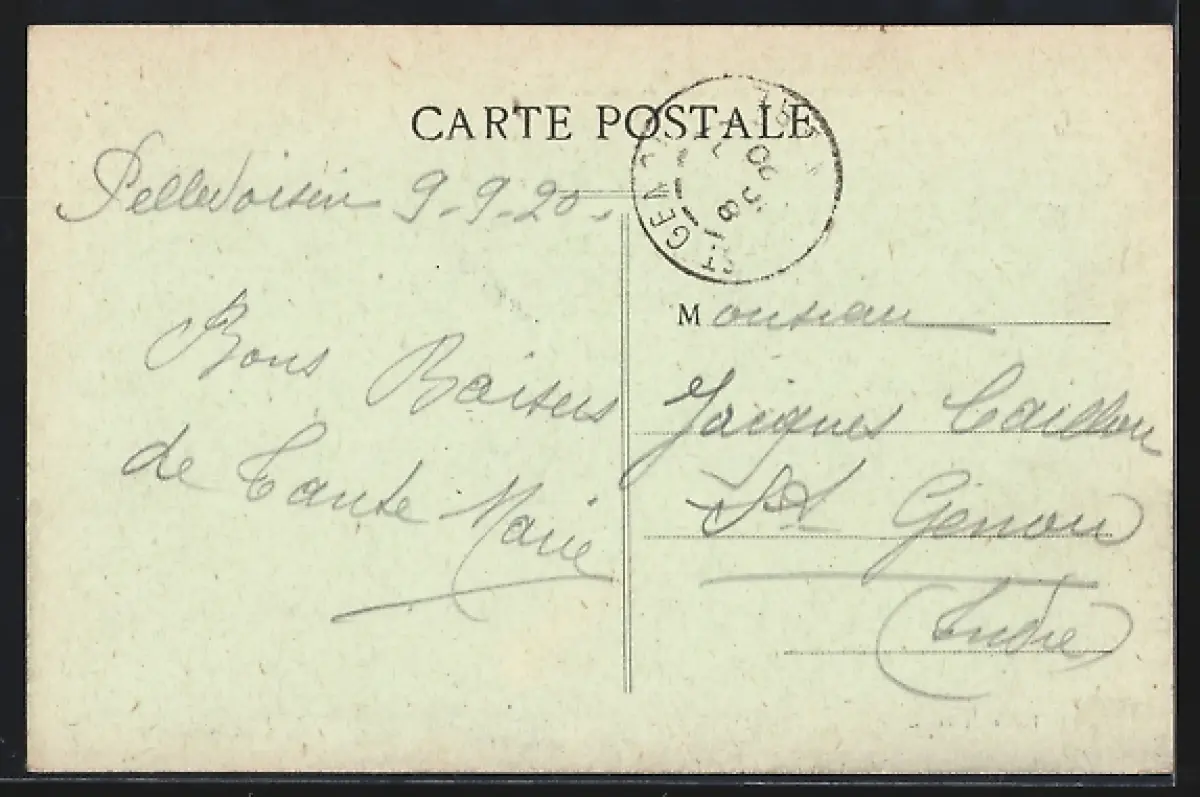 CARTE POSTALE
Pellevoisin 9-9-20.
Bons Baisers
de Tante Marie
ST GENOU
Monsieur
Jacques Caillou
St Genou
(Indre)